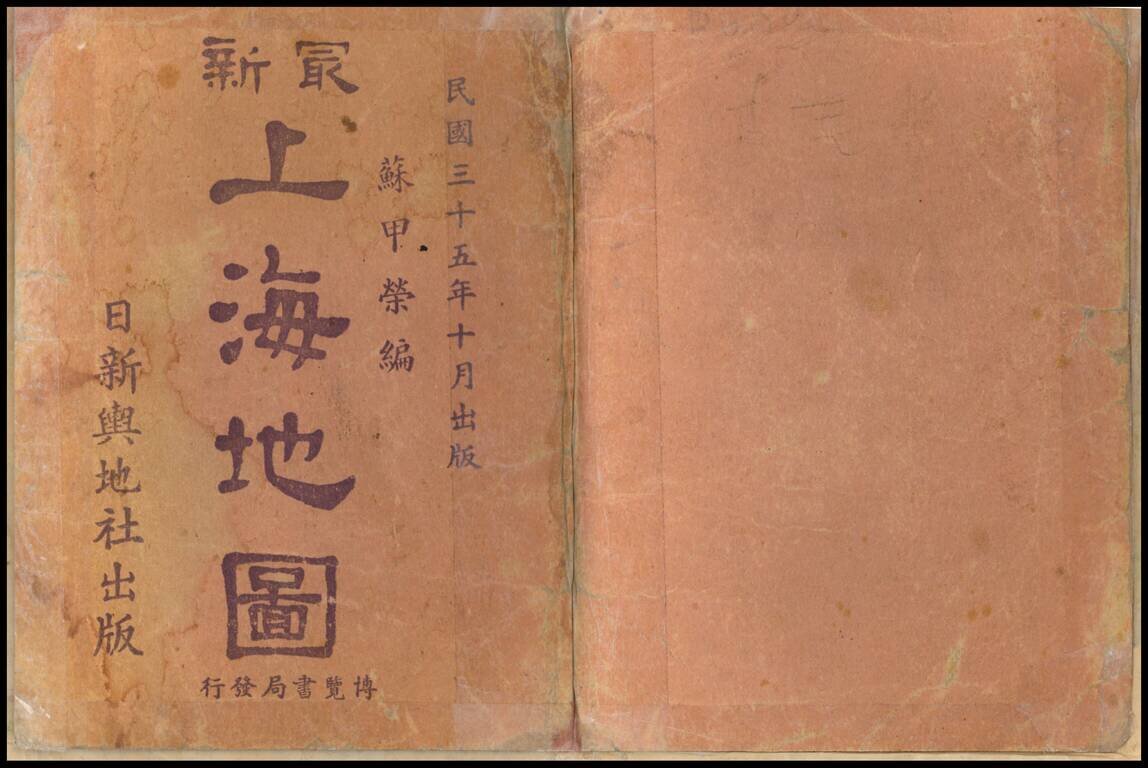 民國三十五年十月出版
蘇甲榮編
最新
上海地圖
日新輿地社出版
博覽書局發行